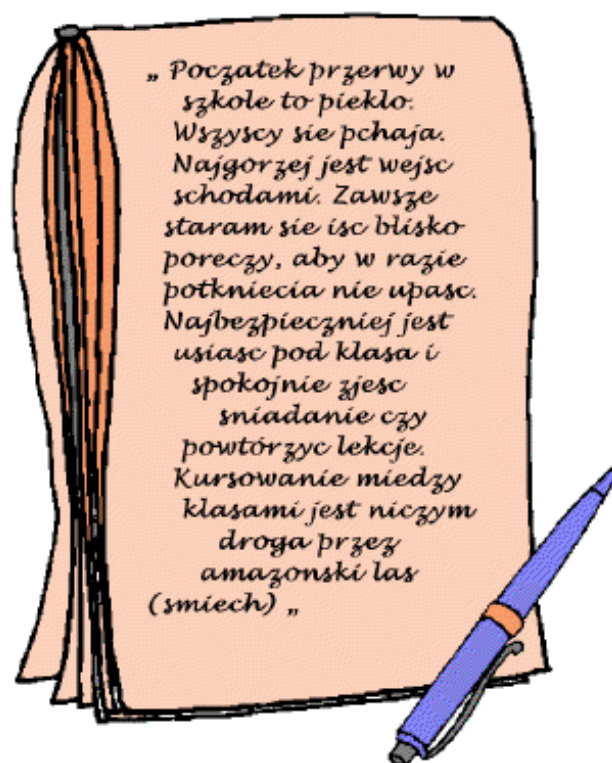 „ Poczatek przerwy w
szkole to pieklo.
Wszyscy sie pchaja.
Najgorzej jest wejsc
schodami. Zawsze
staram sie isc blisko
poreczy, aby w razie
potkniecia nie upasc.
Najbezpieczniej jest
usiasc pod klasa i
spokojnie zjesc
sniadanie czy
powtórzyc lekcje.
Kursowanie miedzy
klasami jest niczym
droga przez
amazonski las
(smiech) „